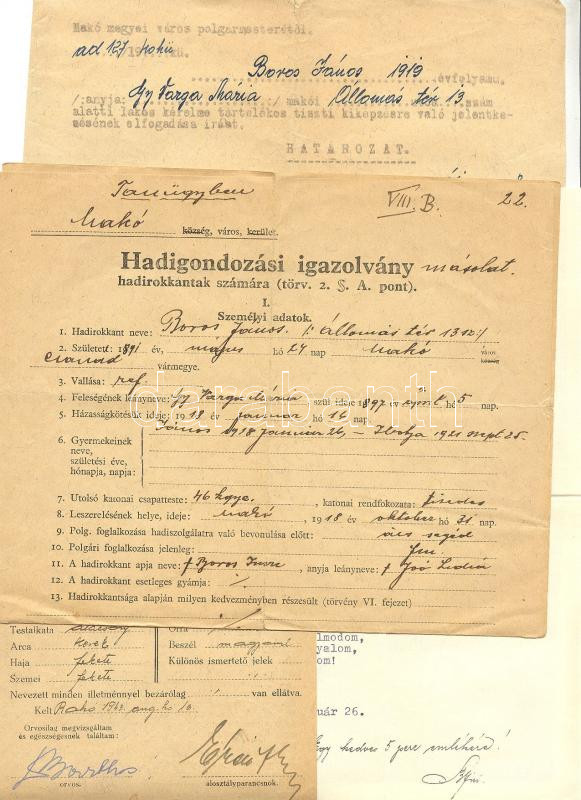 Makó megyei város polgármesterétől.
ad 127
Boros János 1919 évfolyamu,
/:anyja: Gy Varga Mária :/ makói Állomás tér 13. szám
alatti lakos kérelme tartalékos tiszti kiképzésre való jelentke-
zésének elfogadása iránt.
HATÁROZAT.
Tanügyben
VIII. B. 22.
Makó
község, város, kerület.
Hadigondozási igazolvány másolat.
hadirokkantak számára (törv. 2. §. A. pont).
I.
Személyi adatok.
1. Hadirokkant neve: Boros János. /: Állomás tér 13 sz :/
2. Született 1891 év, május hó 24 nap Makó város község
Csanád vármegye.
3. Vallása: ref.
4. Feleségének leányneve: Gy Varga Mária szül. ideje 1897 év hó 5 nap.
5. Házasságkötésük ideje: 1918 év január hó 16 nap.
János 1918 Január 26, - Ibolya 1921 sept 25.
6. Gyermekeinek
neve,
születési éve,
hónapja, napja:
7. Utolsó katonai csapatteste: 46 , katonai rendfokozata: tizedes
8. Leszerelésének helye, ideje: Makó, 1918 év október hó 31 nap.
9. Polg. foglalkozása hadiszolgálatra való bevonulása előtt: ács segéd
10. Polgári foglalkozása jelenleg:
11. A hadirokkant apja neve: † Boros Imre, anyja leányneve: † Joó Lidia
12. A hadirokkant esetleges gyámja:
13. Hadirokkantsága alapján milyen kedvezményben részesült (törvény VI. fejezet)
darabanth
Testalkata alacsony Orra
Arca kerek Beszél magyarul
Haja fekete Különös ismertető jelek
Szemei fekete
Nevezett minden illetménnyel bezárólag van ellátva.
Kelt 194 aug. hó 10.
Orvosilag megvizsgáltam
és egészségesnek találtam:
orvos.
alosztályparancsnok.
lmodom,
yalom,
om!
uár 26.
Egy kedves 5 perc emlékéül!